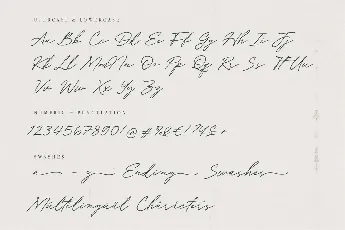 UPPERCASE & LOWERCASE
Aa Bb Cc Dd Ee Ff Gg Hh Ii Jj
Kk Ll Mm Nn Oo Pp Qq Rr Ss Tt Uu
Vv Ww Xx Yy Zz
NUMERIC & PUNCTUATION
1234567890!@#%&
SWASHES
a y Ending Swashes
Multilingual Characters